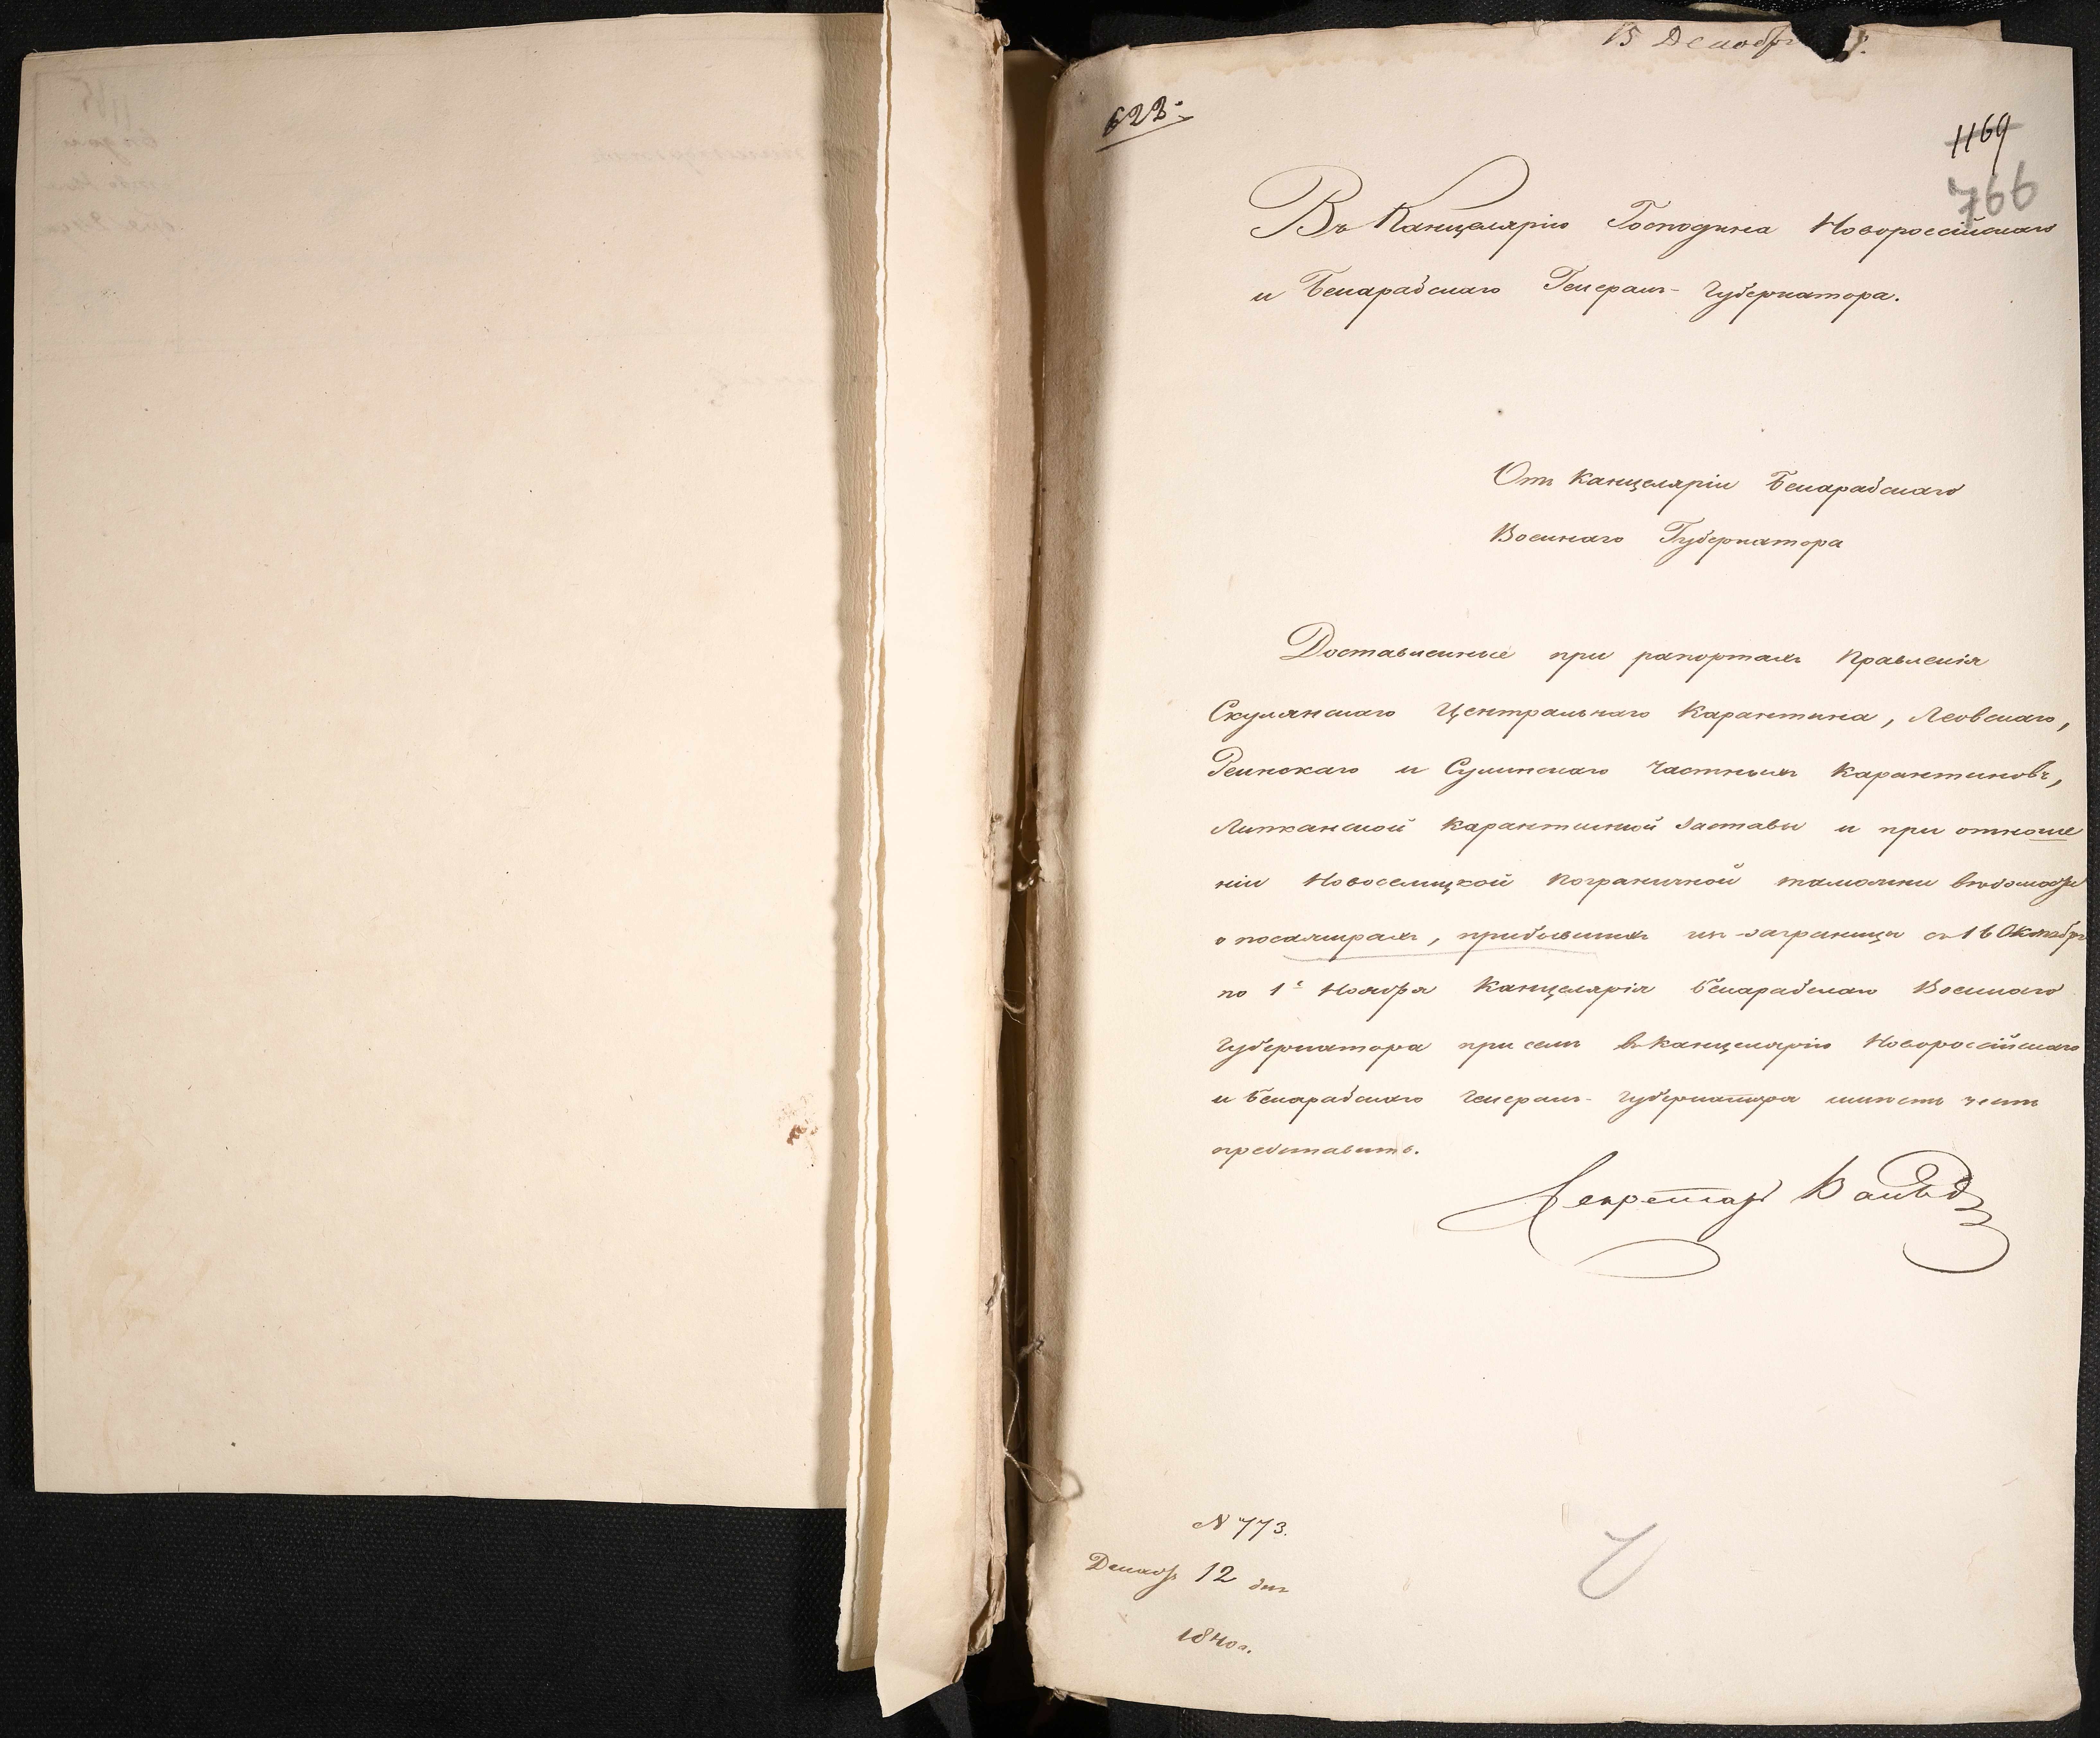 15 Декабр
622.
1169
766
Въ Канцелярію Господина Новороссійскаго
и Бессарабскаго Генералъ-Губернатора.
Отъ Канцеляріи Бессарабскаго
Военнаго Губернатора
Доставленные при рапортахъ Правленія
Скулянскаго Центральнаго Карантина, Леовскаго,
Ренискаго и Сулинскаго Частныхъ Карантиновъ,
Липканской Карантинной Заставы и при отноше
ніи Новоселицкой Пограничной таможни вѣдомости
о пассажирахъ, прибывшихъ изъ-заграницы съ 16 Октября
по 1е Ноября Канцелярія Бессарабскаго Военнаго
Губернатора при семъ въ Канцелярію Новороссійскаго
и Бессарабскаго Генералъ-Губернатора имѣетъ честь
представить.
Секретарь
N 773.
Декабр 12 дня
1840 г.